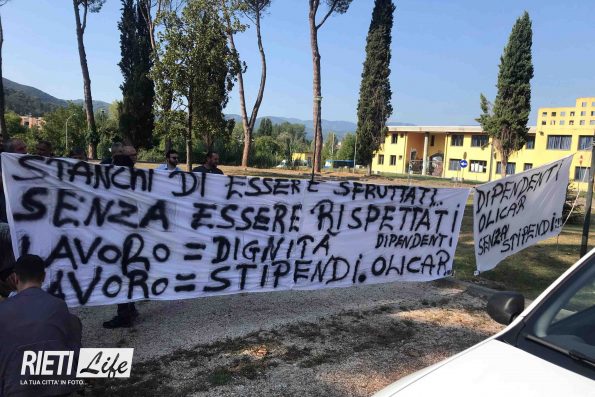 STANCHI DI ESSERE SFRUTTATI..
SENZA ESSERE RISPETTATI
LAVORO = DIGNITÀ DIPENDENTI
LAVORO = STIPENDI. OLICAR..
DIPENDENTI
OLICAR
SENZA
STIPENDI!!
RIETI Life
LA TUA CITTA' IN FOTO